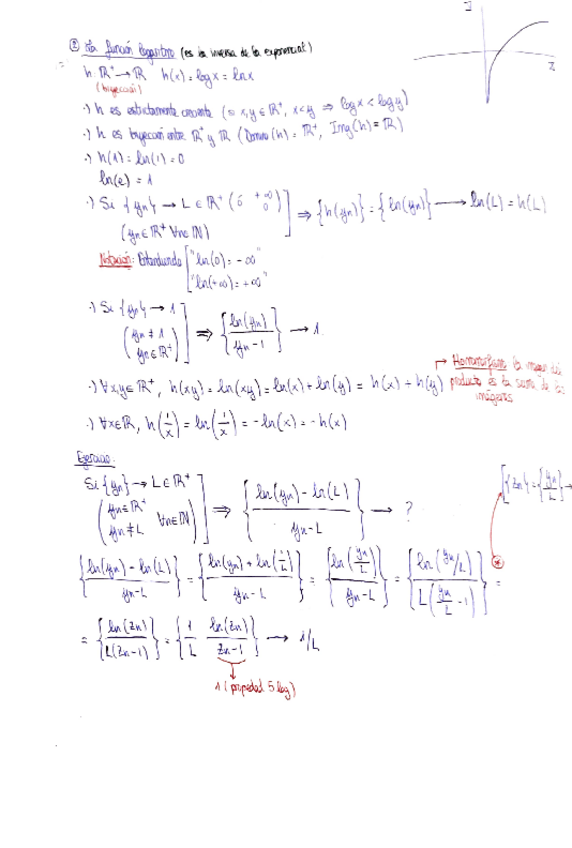 ② La función logaritmo (es la inversa de la exponencial)
h: ℝ⁺ → ℝ h(x) = log x = ln x
(biyección)
·) h es estrictamente creciente (= x,y ∈ ℝ⁺, x<y ⇒ log x < log y)
·) h es biyección entre ℝ⁺ y ℝ (Dominio(h) = ℝ⁺, Img(h) = ℝ)
·) h(1) = ln(1) = 0
ln(e) = 1
·) Si {yn} → L ∈ ℝ⁺ (ó +∞ 0) ] ⇒ {h(yn)} = {ln(yn)} → ln(L) = h(L)
(yn ∈ ℝ⁺ ∀n∈ℕ)
Notación: Entendiendo [ "ln(0) = -∞"
"ln(+∞) = +∞"
·) Si {yn} → 1 (yn ≠ 1 yn ∈ ℝ⁺) ] ⇒ {ln(yn) / yn - 1} → 1
→ Homomorfismo la imagen del
·) ∀x,y ∈ ℝ⁺, h(xy) = ln(xy) = ln(x) + ln(y) = h(x) + h(y) producto es la suma de las
imágenes
·) ∀x∈ℝ, h(1/x) = ln(1/x) = -ln(x) = -h(x)
Ejercicio:
Si {yn} → L ∈ ℝ⁺ (yn ∈ ℝ⁺ yn ≠ L ∀n∈ℕ) ] ⇒ {ln(yn) - ln(L) / yn - L} → ?
[{zn} = {yn/L} →
{ln(yn) - ln(L) / yn - L} = {ln(yn) + ln(1/L) / yn - L} = {ln(yn/L) / yn - L} = {ln(yn/L) / L(yn/L - 1)} =
= {ln(zn) / L(zn - 1)} = {1/L ln(zn) / zn - 1} → 1/L
1 (propiedad 5 log)